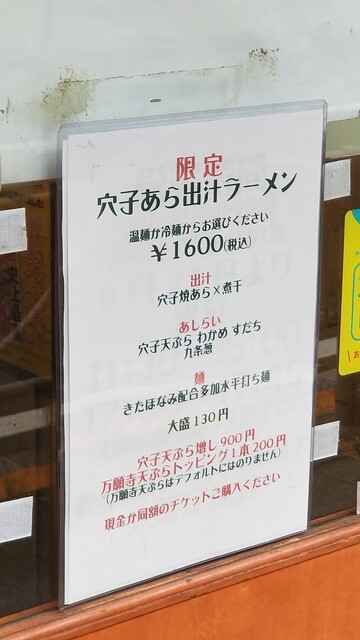 限定
穴子あら出汁ラーメン
温麺か冷麺からお選びください
￥1600(税込)
出汁
穴子焼あら×煮干
あしらい
穴子天ぷら わかめ すだち
九条葱
麺
きたほなみ配合多加水平打ち麺
大盛130円
穴子天ぷら増し900円
万願寺天ぷらトッピング1本200円
(万願寺天ぷらはデフォルトにはのりません)
現金か同額のチケットご購入ください